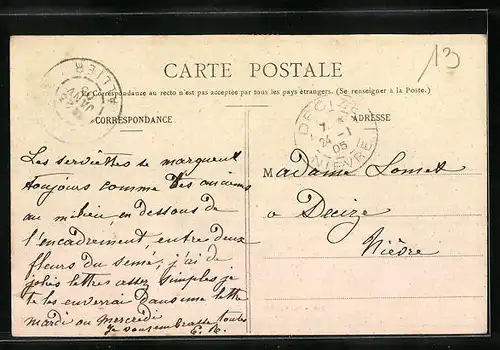 13
CARTE POSTALE
La Correspondance au recto n'est pas acceptée par tous les pays étrangers. (Se renseigner à la Poste.)
CORRESPONDANCE
ADRESSE
ALLIER
JANV
05
DECIZE
7
24 -1
05
NIEVRE
Les serviettes se marquent
toujours comme des anciens
au milieu, en dessous de
l'encadrement, entre deux
fleurs du semé, j'ai de
jolies lettres assez simples je
te les enverrai dans une lettre
mardi ou mercredi
Je vous embrasse toutes
E. R.
Madame Lomet
a Decize
Nièvre